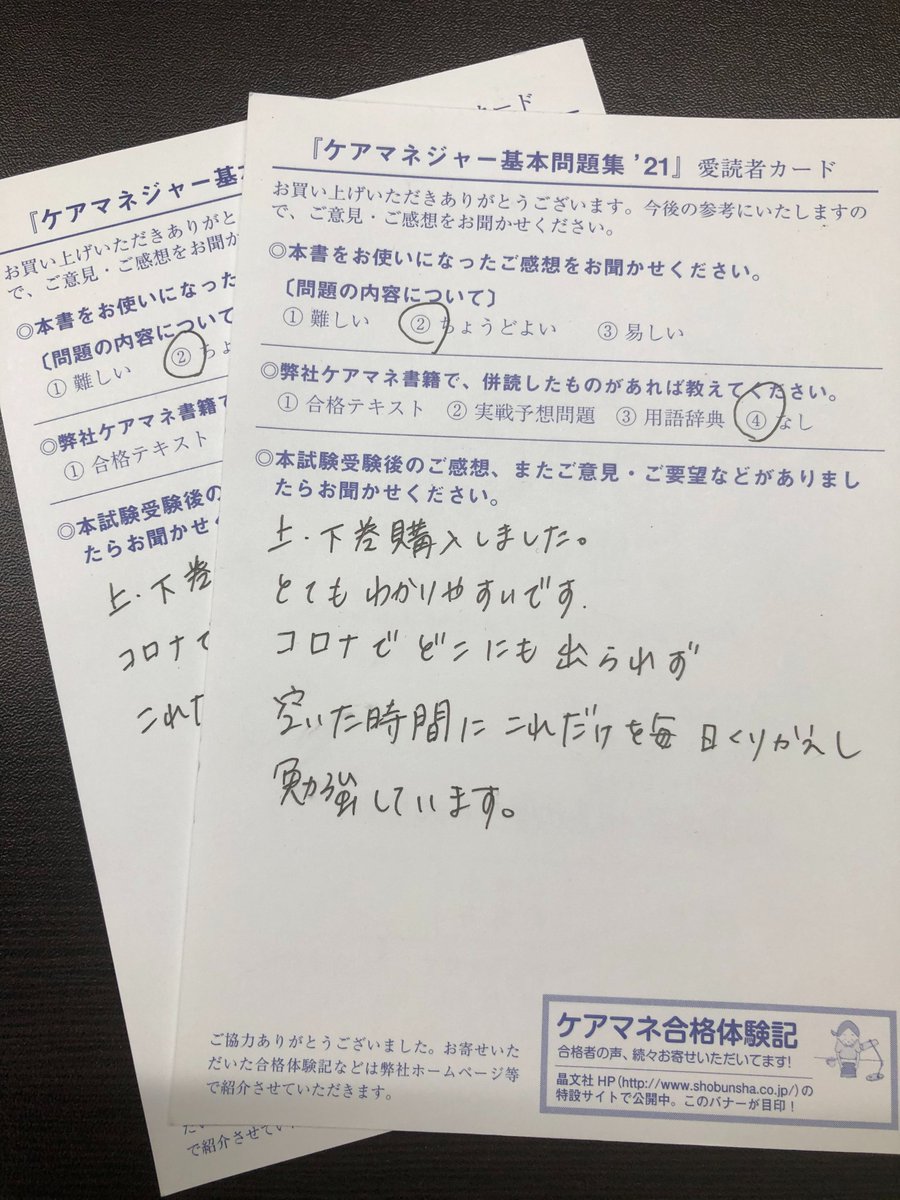 『ケアマネジャー基本問題集 ’21』愛読者カード
お買い上げいただきありがとうございます。今後の参考にいたしますの
で、ご意見・ご感想をお聞かせください。
◎本書をお使いになったご感想をお聞かせください。
〔問題の内容について〕
① 難しい ② ちょうどよい ③ 易しい
◎弊社ケアマネ書籍で、併読したものがあれば教えてください。
① 合格テキスト ② 実戦予想問題 ③ 用語辞典 ④ なし
◎本試験受験後のご感想、またご意見・ご要望などがありまし
たらお聞かせください。
上・下巻購入しました。
とてもわかりやすいです.
コロナでどこにも出られず
空いた時間にこれだけを毎日くりかえし
勉強しています。
ご協力ありがとうございました。お寄せいた
だいた合格体験記などは弊社ホームページ等
で紹介させていただきます。
ケアマネ合格体験記
合格者の声、続々お寄せいただいてます!
晶文社 HP(http://www.shobunsha.co.jp/)の
特設サイトで公開中。このバナーが目印!
カード
『ケアマネジャー基
お買い上げいただきありがと
で、ご意見・ご感想をお聞か
◎本書をお使いになった
〔問題の内容について
① 難しい ② ちょ
◎弊社ケアマネ書籍で
① 合格テキスト
◎本試験受験後の
たらお聞かせく
上・下巻
コロナで
これだ
で紹介させてい